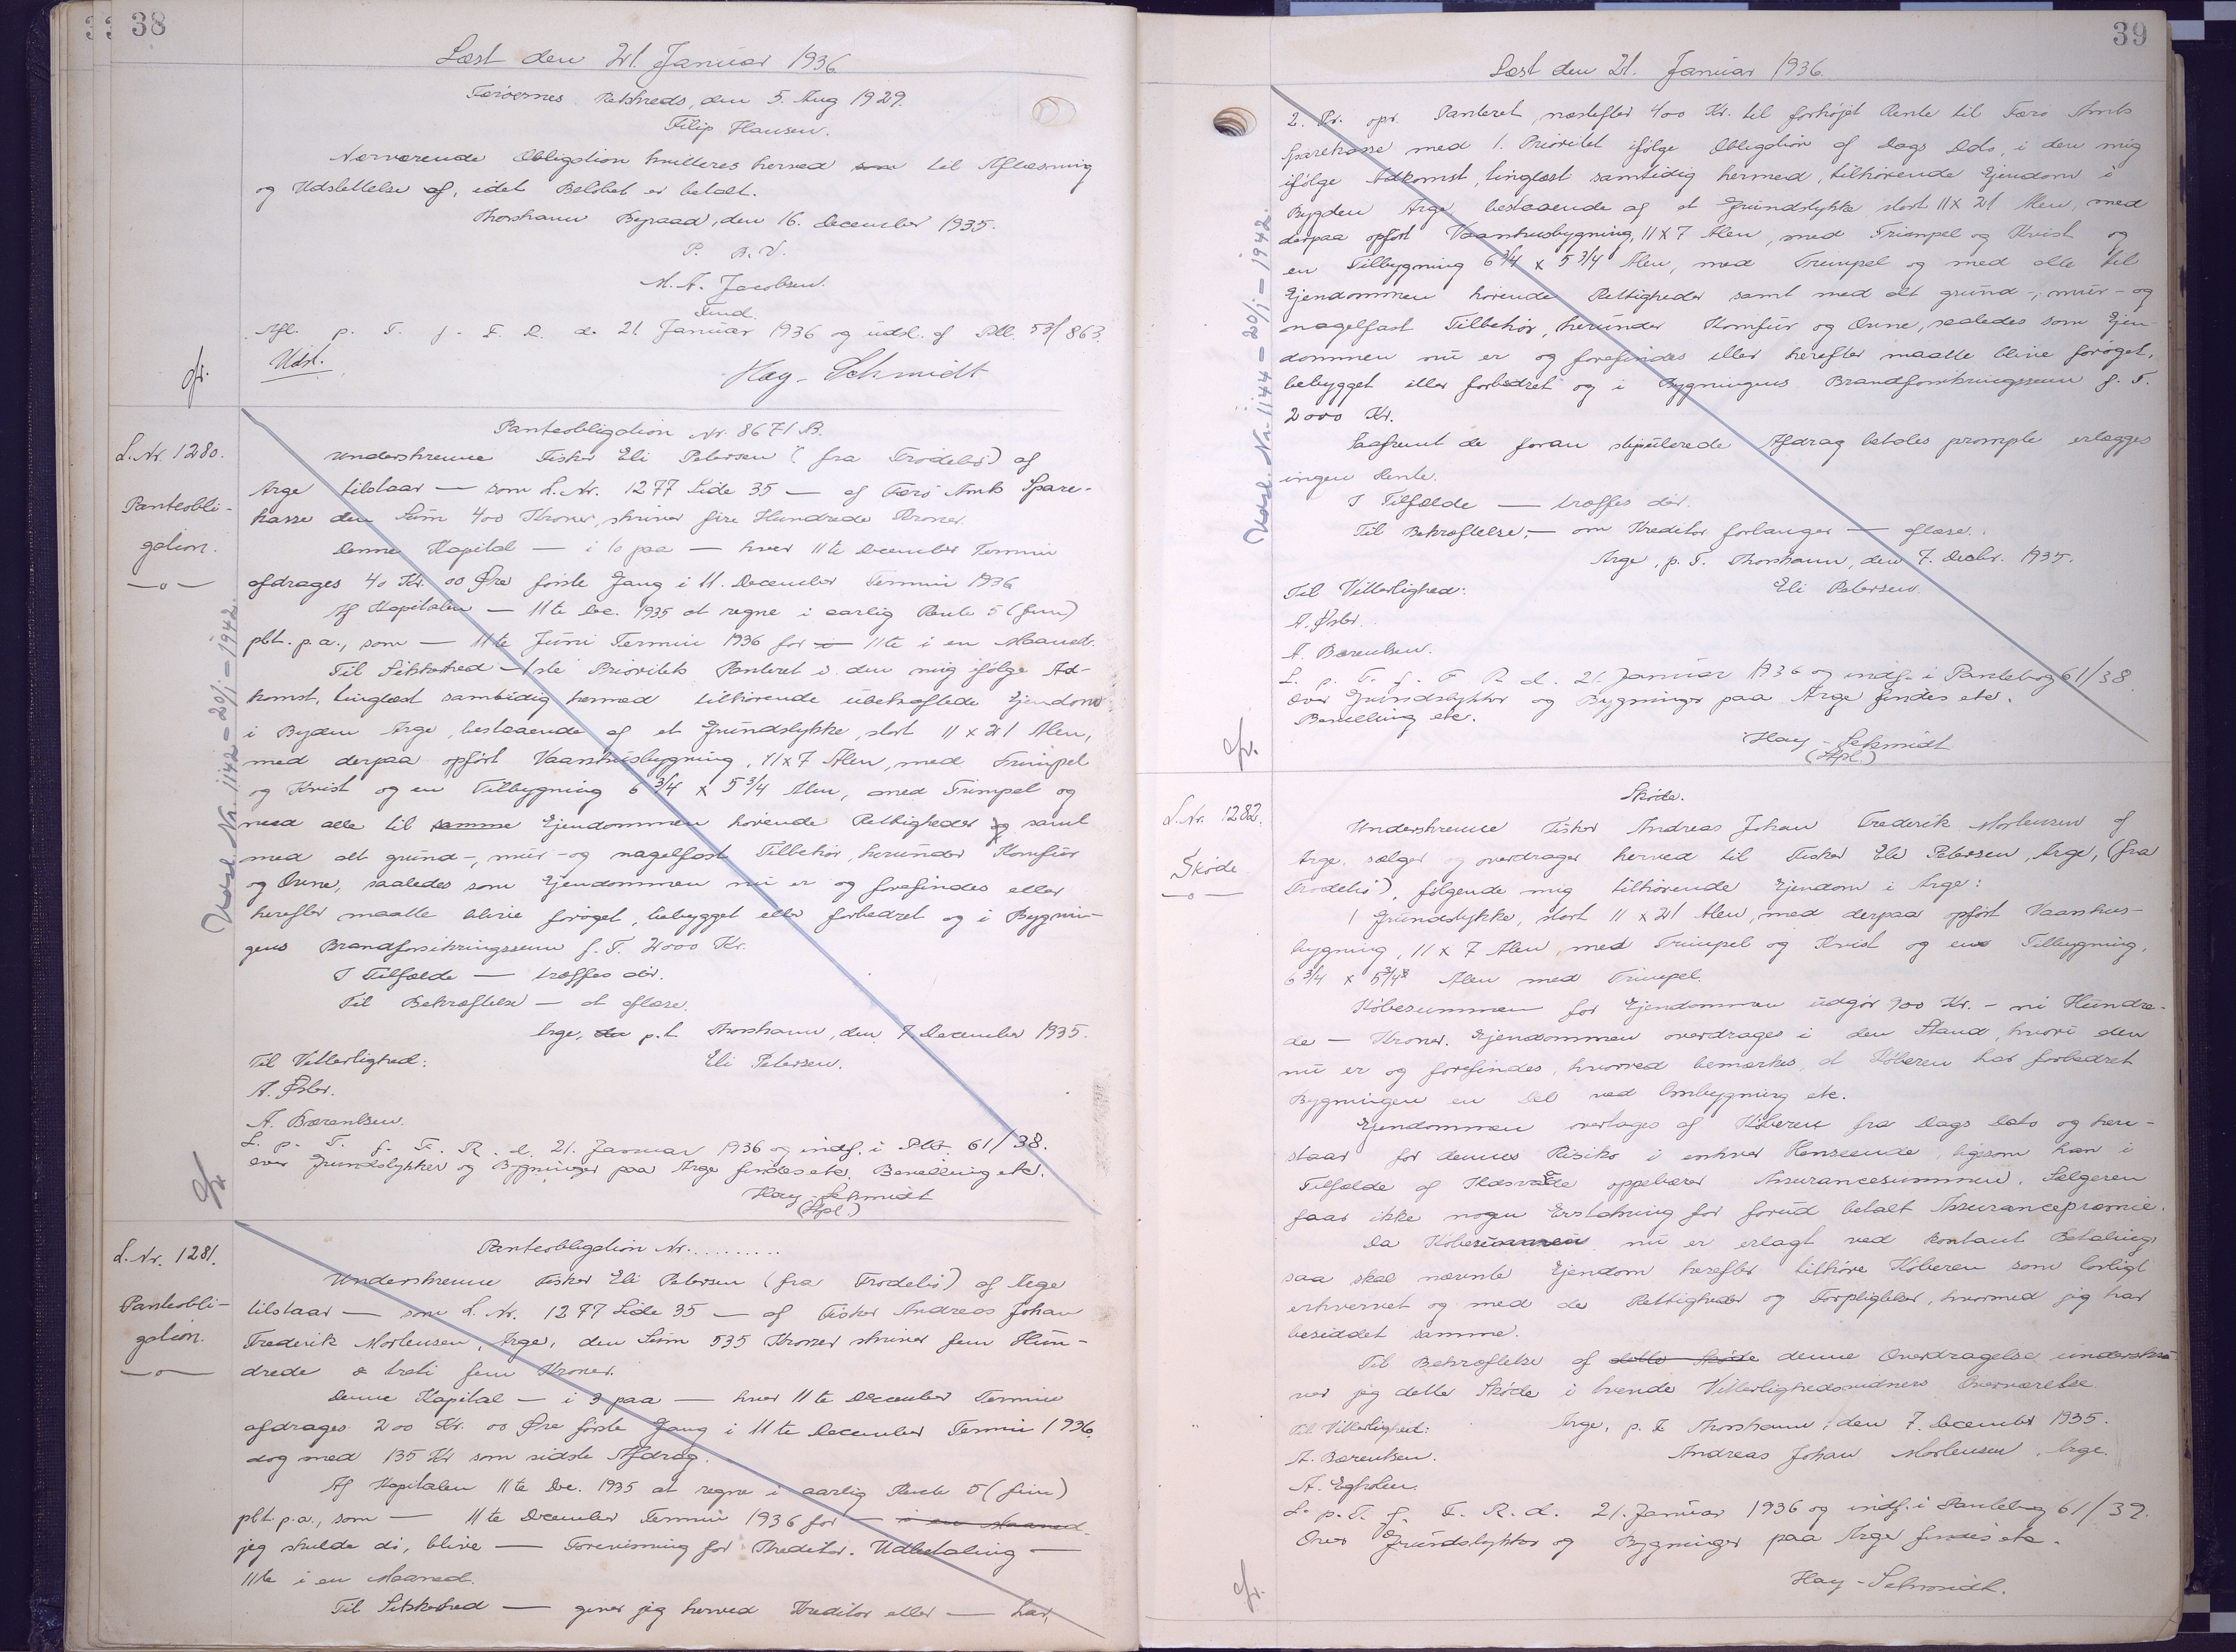 38
Læst den 21. Januar 1936
Færøernes Retskreds, den 5. Aug 1929.
Filip Hansen.
Nærværende Obligation kvitteres herved som til Aflæsning
og Udslettelse af, idet Beløbet er betalt.
Thorshavn Byraad, den 16. December 1935.
P. B. V.
M. A. Jacobsen.
Fmd.
Afl. p. T. f. F. R. d. 21 Januar 1936 og udsl. af Ptb. 53/863.
Udsl.
Hay-Schmidt
L. Nr. 1280.
Panteobli-
gation.
Udsl. Nr. 1142 - 20/1 - 1942.
Panteobligation Nr. 8671 B.
Underskrevne Fisker Eli Petersen (fra Trødelsi) af
Arge tilstaar — som L. Nr. 1277 Side 35 — af Færø Amts Spare-
kasse den Sum 400 Kroner, skriver fire Hundrede Kroner.
Denne Kapital — i 10 paa — hver 11te December Termin
afdrages 40 Kr. 00 Øre første Gang i 11. December Termin 1936
Af Kapitalen — 11te Dec. 1935 at regne i aarlig Rente 5 (fem)
pCt. p.a., som — 11te Juni Termin 1936 for i 11te i en Maaned.
Til Sikkerhed — 1ste Prioritets Panteret i den mig ifølge Ad-
komst, tinglæst samtidig hermed tilhørende ubehæftede Ejendom
i Bygden Arge, bestaaende af et Grundstykke, stort 11 x 21 Alen,
med derpaa opført Vaanhusbygning, 11x7 Alen, med Trimpel
og Kvist og en Tilbygning 6 3/4 x 5 3/4 Alen, med Trimpel og
med alle til samme Ejendommen hørende Rettigheder og samt
med alt grund-, mur- og nagelfast Tilbehør, herunder Komfur
og Ovne, saaledes som Ejendommen nu er og forefindes eller
herefter maatte blive forøget, bebygget eller forbedret og i Bygnin-
gens Brandforsikringssum f. T. 2000 Kr.
I Tilfælde — træffes dér.
Til Bekræftelse — at aflæse.
Arge, den p.t. Thorshavn, den 7 December 1935.
Til Vitterlighed: Eli Petersen.
A. Øster.
A. Bærentsen.
L. p. T. f. F. R. d. 21. Januar 1936 og indf. i Ptb. 61/38.
Over Grundstykker og Bygninger paa Arge findes etc. Bevilling etc.
Hay-Schmidt
(Stpl.)
L. Nr. 1281.
Panteobli-
gation.
Panteobligation Nr. ..........
Underskrevne Fisker Eli Petersen (fra Trødelsi) af Arge
tilstaar — som L. Nr. 1277 Side 35 — af Fisker Andreas Johan
Frederik Mortensen, Arge, den Sum 535 Kroner skriver fem Hun-
drede & treti fem Kroner.
Denne Kapital — i 3 paa — hver 11te December Termin
afdrages 200 Kr. 00 Øre første Gang i 11te December Termin 1936,
dog med 135 Kr som sidste Afdrag.
Af Kapitalen 11te Dec. 1935 at regne i aarlig Rente 5 (fem)
pCt. p.a., som — 11te December Termin 1936 for — i en Maaned.
jeg skulde dø, blive — Forevisning for Kreditor. Udbetaling —
11te i en Maaned.
Til Sikkerhed — giver jeg herved Kreditor eller — har,
39
Læst den 21. Januar 1936.
Udsl. Nr. 1144 - 20/1 - 1942.
2. Pr. opr. Panteret, næstefter 400 Kr. til forhøjet Rente til Færø Amts
Sparekasse med 1. Prioritet ifølge Obligation af Dags Dato, i den mig
ifølge Adkomst, tinglæst samtidig hermed, tilhørende Ejendom i
Bygden Arge, bestaaende af et Grundstykke, stort 11 x 21 Alen, med
derpaa opført Vaanhusbygning, 11x7 Alen, med Trimpel og Kvist og
en Tilbygning 6 3/4 x 5 3/4 Alen, med Trimpel og med alle til
Ejendommen hørende Rettigheder samt med alt grund-, mur- og
nagelfast Tilbehør, herunder Komfur og Ovne, saaledes som Ejen-
dommen nu er og forefindes eller herefter maatte blive forøget,
bebygget eller forbedret og i Bygningens Brandforsikringssum f. T.
2000 Kr.
Saafremt de foran stipulerede Afdrag betales prompte erlægges
ingen Rente.
I Tilfælde — træffes dér.
Til Bekræftelse, — om Kreditor forlanger — aflæse.
Arge, p. T. Thorshavn, den 7. Decbr. 1935.
Til Vitterlighed: Eli Petersen.
A. Øster.
A. Bærentsen.
L. p. T. f. F. R. d. 21. Januar 1936 og indf. i Pantebog 61/38.
Over Grundstykker og Bygninger paa Arge findes etc.
Bevilling etc.
Hay-Schmidt
(Stpl.)
L. Nr. 1282.
Skøde
Skøde.
Underskrevne Fisker Andreas Johan Frederik Mortensen af
Arge, sælger og overdrager herved til Fisker Eli Petersen, Arge, (fra
Trødelsi), følgende mig tilhørende Ejendom i Arge:
1 Grundstykke, stort 11 x 21 Alen, med derpaa opført Vaanhus-
bygning, 11 x 7 Alen, med Trimpel og Kvist og en Tilbygning,
6 3/4 x 5 3/4 Alen med Trimpel.
Købesummen for Ejendommen udgør 900 Kr. - ni Hundre-
de — Kroner. Ejendommen overdrages i den Stand, hvori den
nu er og forefindes, hvorved bemærkes, at Køberen har forbedret
Bygningen en Del ved Ombygning etc.
Ejendommen overtages af Køberen fra Dags Dato og hen-
staar for dennes Risiko i enhver Henseende, ligesom han i
Tilfælde af Ildsvaade oppebærer Assurancesummen. Sælgeren
faar ikke nogen Erstatning for forud betalt Assurancepræmie.
Da Købesummen nu er erlagt ved kontant Betaling,
saa skal nævnte Ejendom herefter tilhøre Køberen som lovligt
erhvervet og med de Rettigheder og Forpligtelser, hvormed jeg har
besiddet samme.
Til Bekræftelse af dette Skøde denne Overdragelse underskri-
ver jeg dette Skøde i tvende Vitterlighedsvidners Overværelse.
Til Vitterlighed: Arge, p. T. Thorshavn, den 7. December 1935.
A. Bærentsen. Andreas Johan Mortensen, Arge.
A. Egholm.
L. p. T. f. F. R. d. 21. Januar 1936 og indf. i Pantebog 61/39.
Over Grundstykker og Bygninger paa Arge findes etc.
Hay-Schmidt.